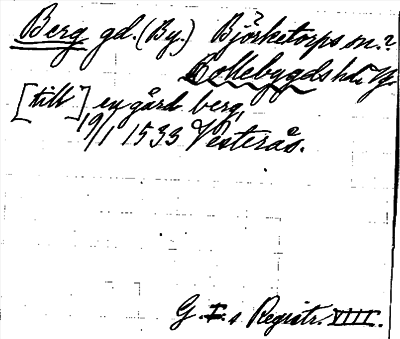 Berg gd. (By.) Björketorps sn.?
Bollebygds hd. Vg.
[till] en gård berg,
19/1 1533 Vesterås.
G. I.s Registr. VIII.